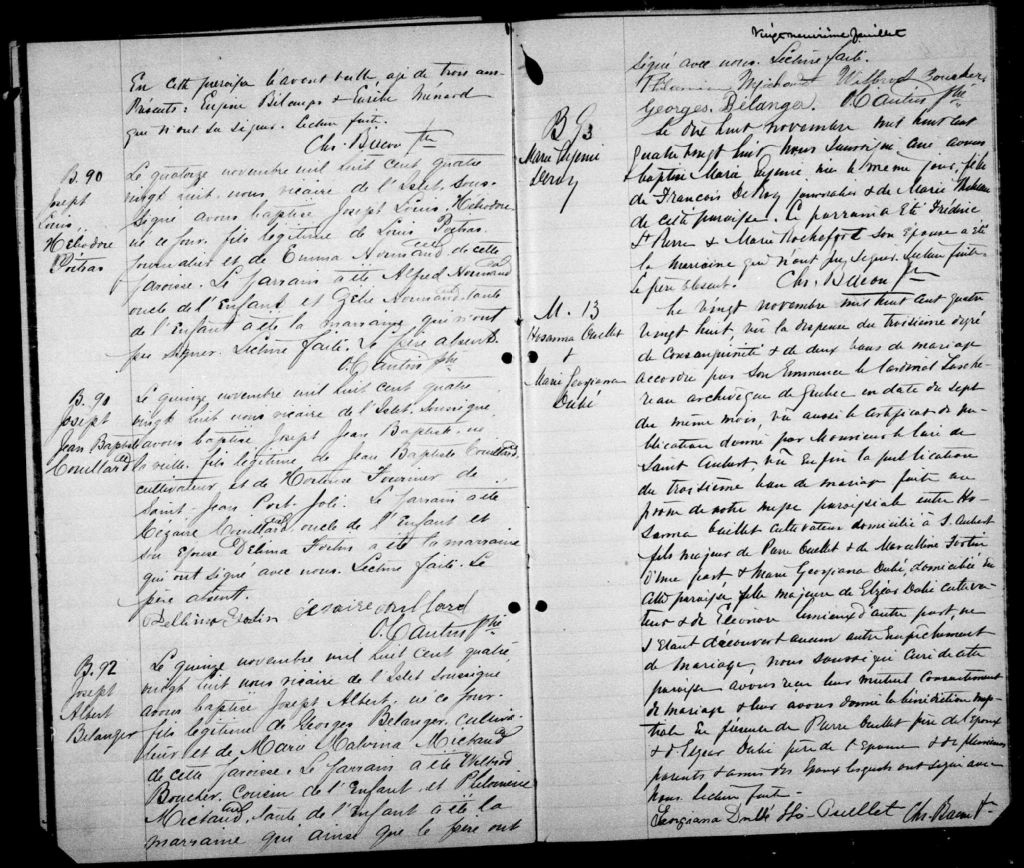 En cette paroisse l'avant veille, agé de trois ans.
Présents: Eugène Bélanger & Émile Ménard
qui n'ont su signer. Lecture faite.
Chs. Bacon Ptre
B. 90
Joseph
Louis
Heliodore
Poitras
Le quatorze novembre mil huit cent quatre
vingt huit, nous vicaire de l'Islet, sous-
signé avons baptisé Joseph Louis Heliodore
né ce jour, fils légitime de Louis Poitras
journalier et de Emma Normand de cette
paroisse. Le parrain a été Alfred Normand
oncle de l'Enfant et Normand tante
de l'Enfant a été la marraine qui n'ont
pu signer. Lecture faite. Le père absent.
O. Cantin Ptre
B. 90
Joseph
Jean Baptiste
Couillard
Le quinze novembre mil huit cent quatre
vingt huit nous vicaire de l'Islet, soussigné,
avons baptisé Joseph Jean Baptiste, né
la veille, fils légitime de Jean Baptiste Couillard
cultivateur et de Hortense Fournier de
Saint-Jean Port-Joli. Le parrain a été
Cézaire Couillard oncle de l'Enfant et
son Epouse Delima Fortin a été la marraine
qui ont signé avec nous. Lecture faite. Le
père absent.
Dellima Fortin Cezaire Couillard
O. Cantin Ptre
B. 92
Joseph
Albert
Belanger
Le quinze novembre mil huit cent quatre
vingt huit nous vicaire de l'Islet soussigné
avons baptisé Joseph Albert, né ce jour
fils légitime de Georges Belanger, cultiva-
teur et de Marie Malvina Michaud
de cette paroisse. Le parrain a été Wilbrod
Boucher, cousin de l'Enfant, et Philomène
Michaud, tante de l'Enfant a été la
marraine qui ainsi que le père ont
Vingt neuvième feuillet
signé avec nous. Lecture faite.
Michaud Wilbrod Boucher
Georges Bélanger. O. Cantin Ptre
B 93
Marie Eugenie
Deroy
Le dix huit novembre mil huit cent
quatre vingt huit nous soussigné curé avons
baptisé Marie Eugenie née le même jour, fille
de François DeRoy journalier & de Marie
de cette paroisse. Le parrain a été Frédéric
St Pierre & Marie Rochefort son Epouse a été
la marraine qui n'ont pu signer. Lecture faite
le père absent. Chs. Bacon Ptre
M. 13
Hosanna Ouellet
&
Marie Georgiana
Dubé
Le vingt novembre mil huit cent quatre
vingt huit, vu la dispense du troisième degré
de consanguinité & de deux bans de mariage
accordée par Son Eminence le Cardinal Tasche-
reau archevêque de Quebec en date du sept
du même mois, vu aussi le certificat de pu-
blication donné par Monsieur le Curé de
Saint Aubert, vu enfin la publication
du troisième ban de mariage faite au
prône de notre messe paroissiale entre Ho-
sanna Ouellet cultivateur domicilié à S. Aubert
fils majeur de Pierre Ouellet & de Marcelline Fortin
d'une part, & Marie Georgiana Dubé, domiciliée en
cette paroisse fille majeure de Elzéar Dubé cultiva-
teur & de Eléonore Lemieux d'autre part, ne
s'étant découvert aucun autre empêchement
de mariage, nous soussigné curé de cette
paroisse avons reçu leur mutuel consentement
de mariage & leur avons donné la bénédiction nup-
tiale en présence de Pierre Ouellet père de l'époux
& d'Elzéar Dubé père de l'Epouse & de plusieurs
parents & amis des Epoux lesquels ont signé avec
nous. Lecture faite.
Georgiana Dubé Ho- Ouellet Chs. Bacon Ptre